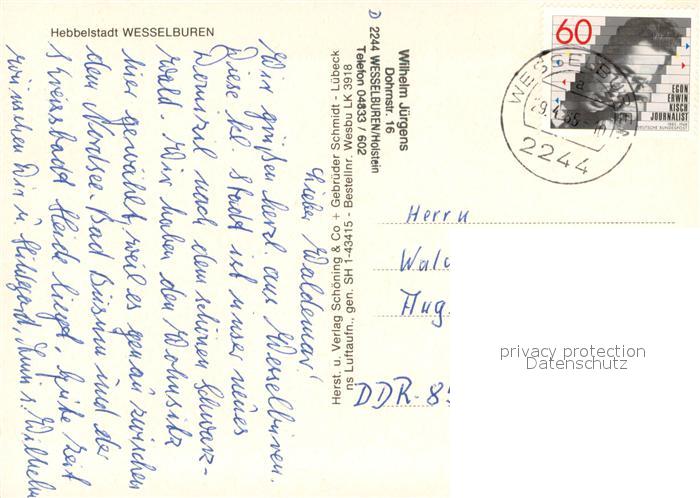 Hebbelstadt WESSELBUREN
Wilhelm Jürgens
Dohrnstr. 16
D 2244 WESSELBUREN/Holstein
Telefon 04833 / 602
Herst. u. Verlag Schöning & Co + Gebrüder Schmidt - Lübeck
ns Luftaufn., gen. SH 1-43415 - Bestellnr. Wesbu LK 3918
Liebe Waldemar!
Wir grüßen herzl. aus Wesselburen.
Diese kl. Stadt ist unser neues
Domizil nach dem schönen Schwarz-
wald. Wir haben den Wohnsitz
hier gewählt, weil es genau zwischen
der Nordsee - Bad Büsum und der
Kreisstadt Heide liegt. Gute Zeit
wünschen Dir u. Hildegard, Deine u. Wilhelm
60
EGON
ERWIN
KISCH
JOURNALIST
1885-1948
DEUTSCHE BUNDESPOST
WESSELBUREN
a
29.4.85-10
2244
Herrn
Wald
Aug.
DDR-85
privacy protection
Datenschutz